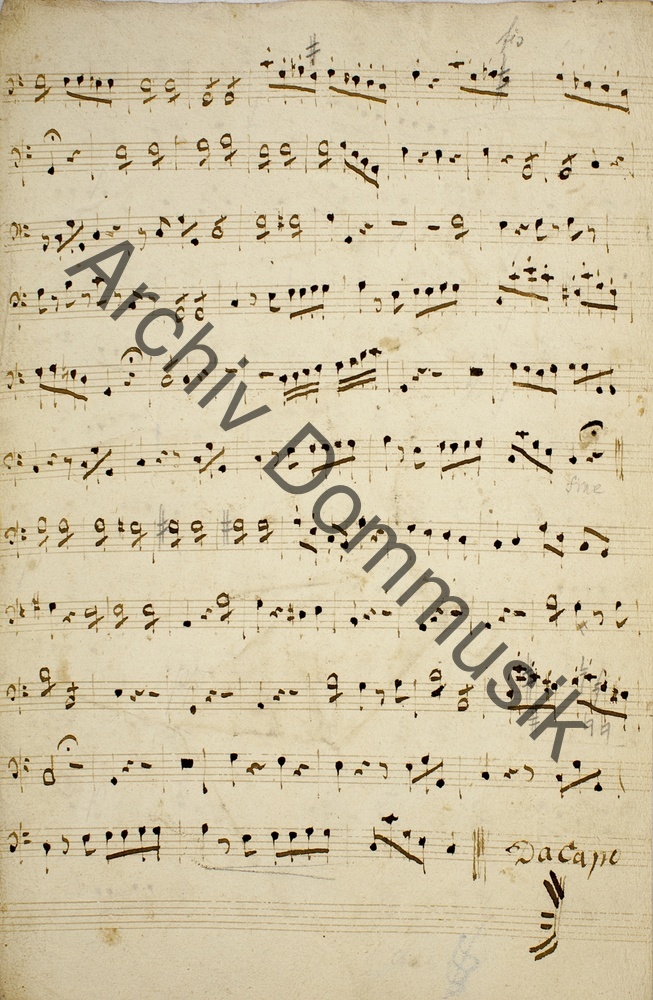 fis
Archiv Dommusik
fine
Da Capo